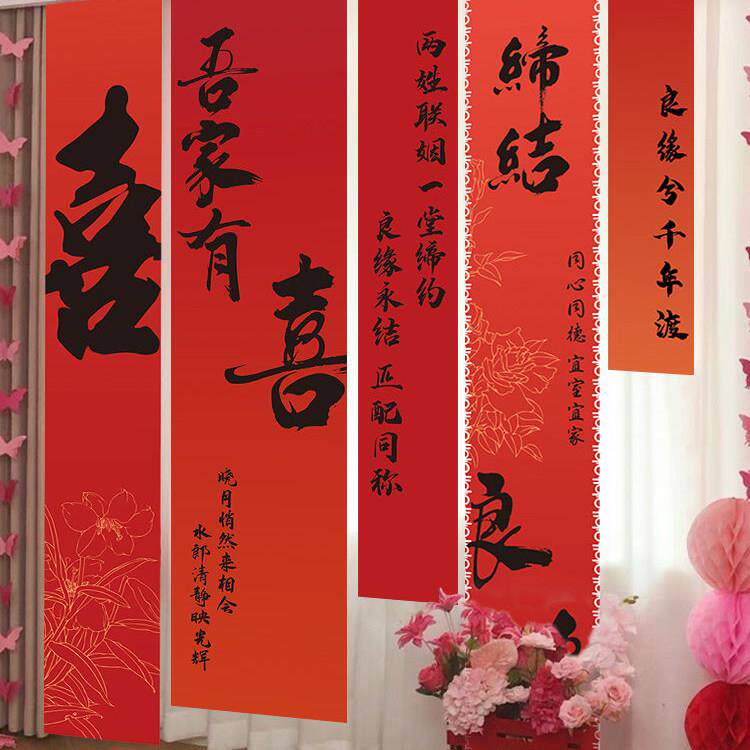 喜
吾家有
喜
晓月悄然来相会
水郎清静映光辉
两姓联姻 一堂缔约
良缘永结 匹配同称
缔结
同心同德 宜室宜家
良
良缘兮千年渡